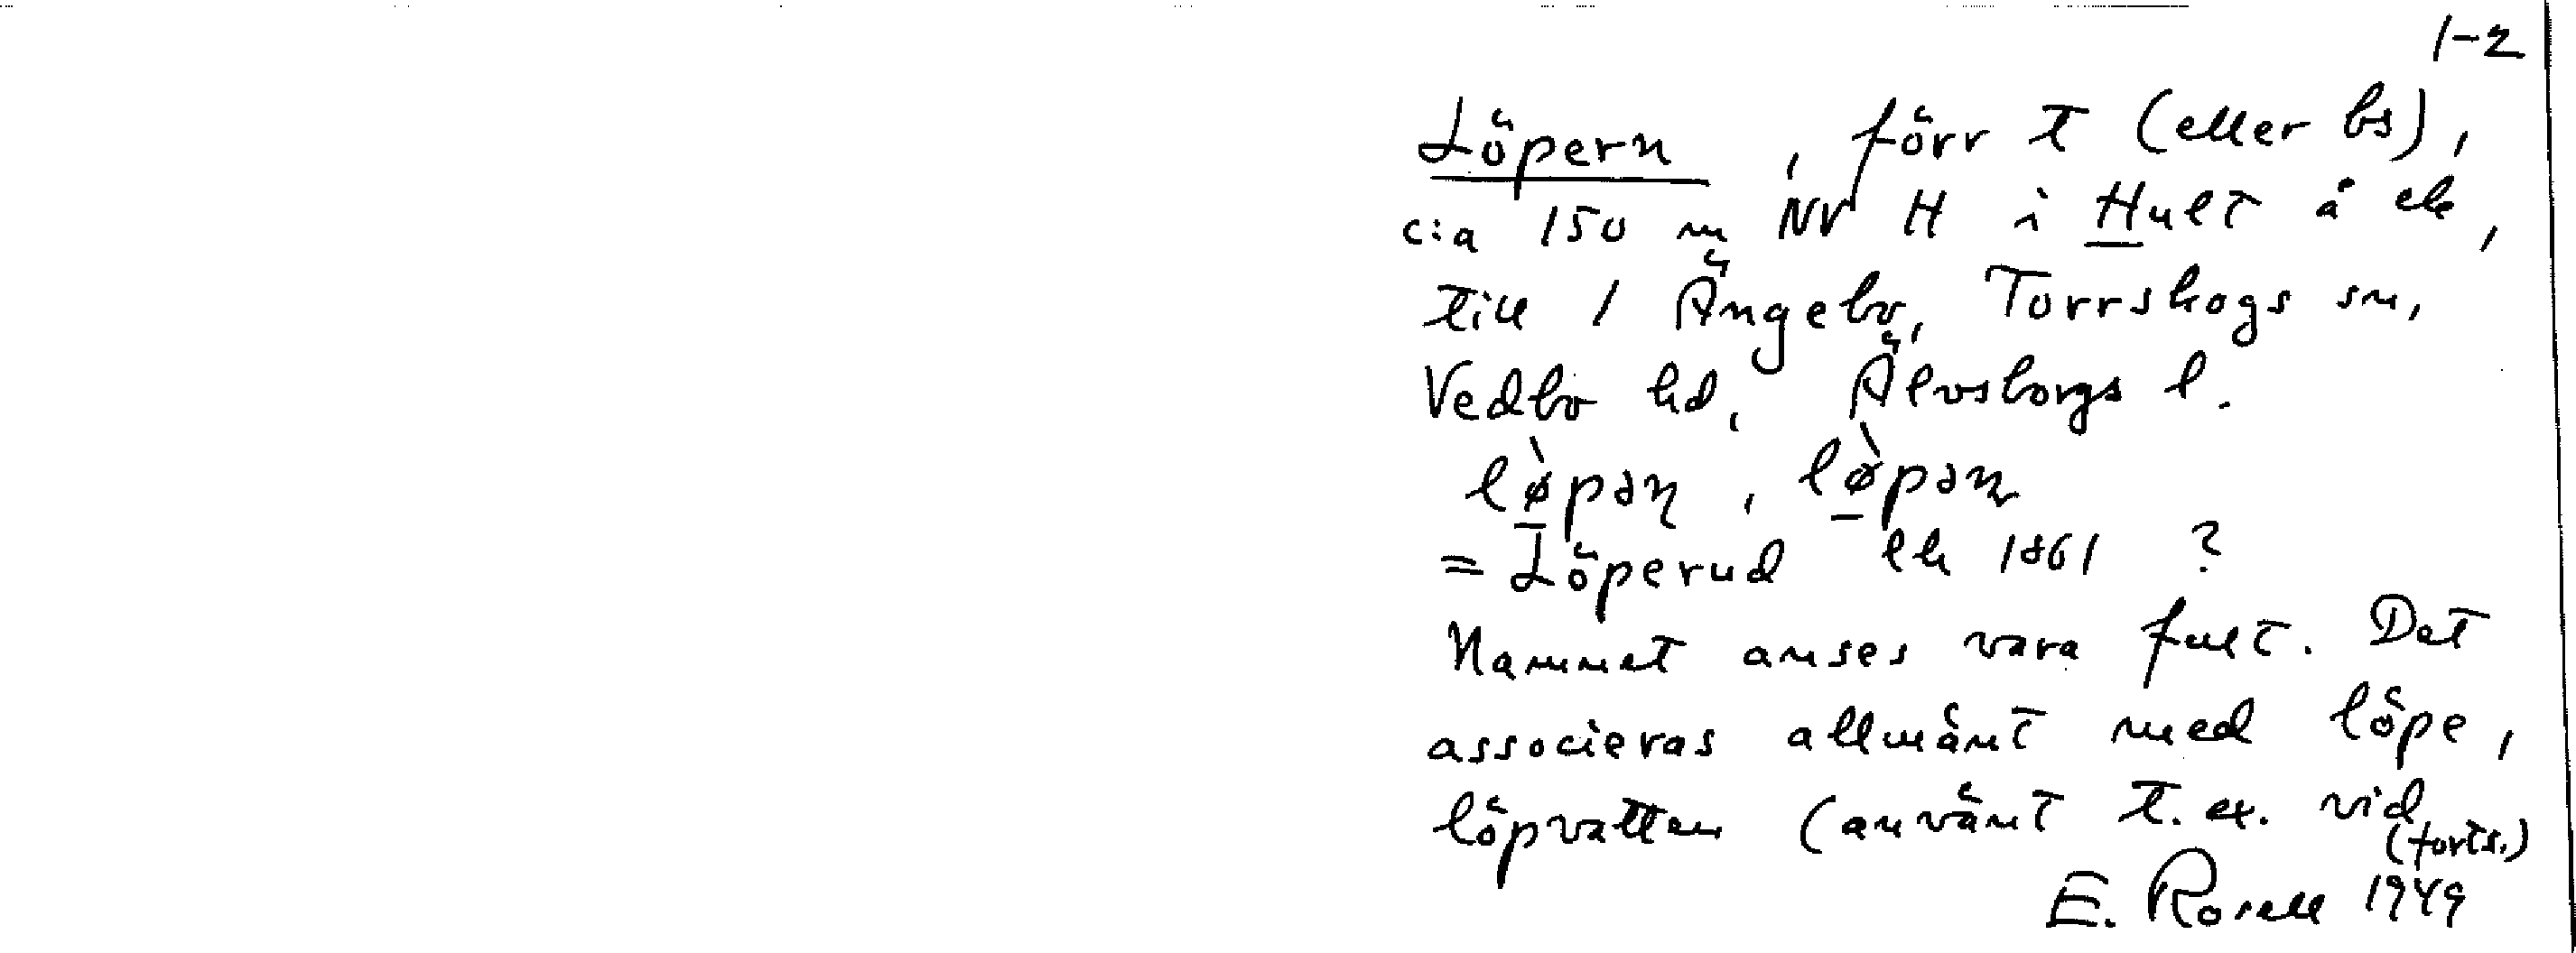 1-2
Löpern, förr t (eller bs),
c:a 150 m NV H i Hult å ek,
till 1 Ängebo, Torrskogs sn,
Vedbo hd, Älvsborgs l.
= Löperud ek 1861 ?
Namnet anses vara fult. Det
associeras allmänt med löpe,
löpvatten (använt t.ex. vid
(forts.)
E. Rosell 1949